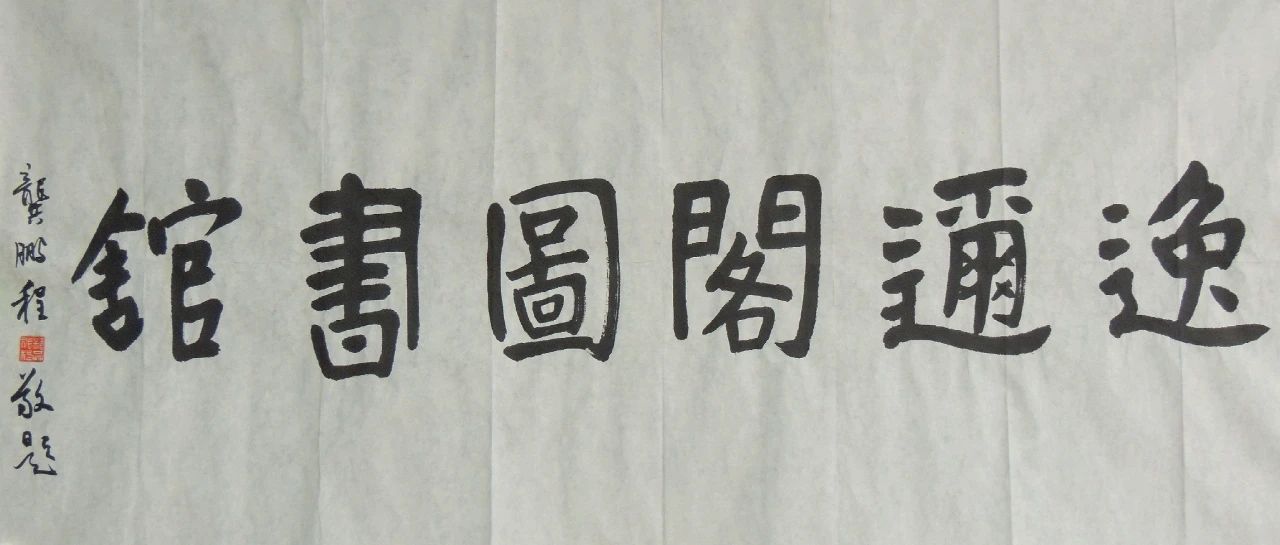 逸邇閣圖書舘
龔鵬程
敬題